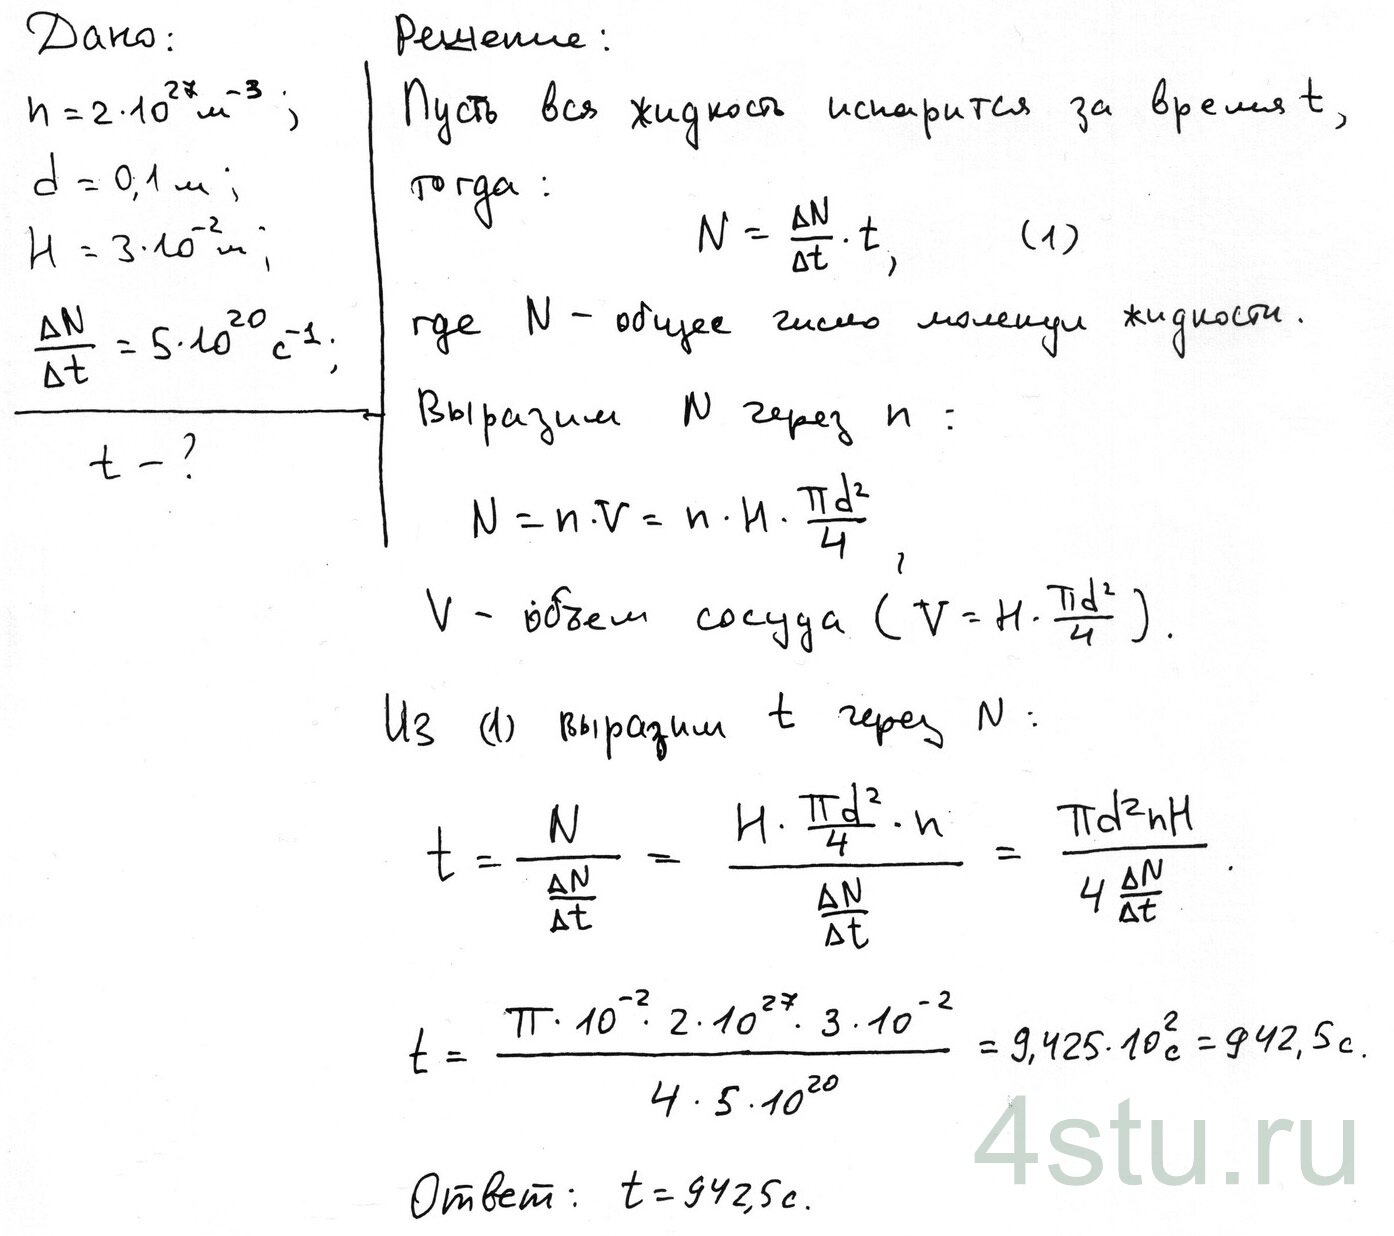 Дано:
n = 2·10²⁷ м⁻³;
d = 0,1 м;
H = 3·10⁻² м;
ΔN/Δt = 5·10²⁰ с⁻¹;
t - ?
Решение:
Пусть вся жидкость испарится за время t,
тогда:
N = ΔN/Δt · t, (1)
где N - общее число молекул жидкости.
Выразим N через n:
N = n·V = n·H·πd²/4,
V - объем сосуда (V = H·πd²/4).
Из (1) выразим t через N:
t = N/(ΔN/Δt) = (H·πd²/4·n)/(ΔN/Δt) = πd²nH/(4 ΔN/Δt).
t = (π·10⁻²·2·10²⁷·3·10⁻²)/(4·5·10²⁰) = 9,425·10² с = 942,5 с.
Ответ: t = 942,5 с.
4stu.ru